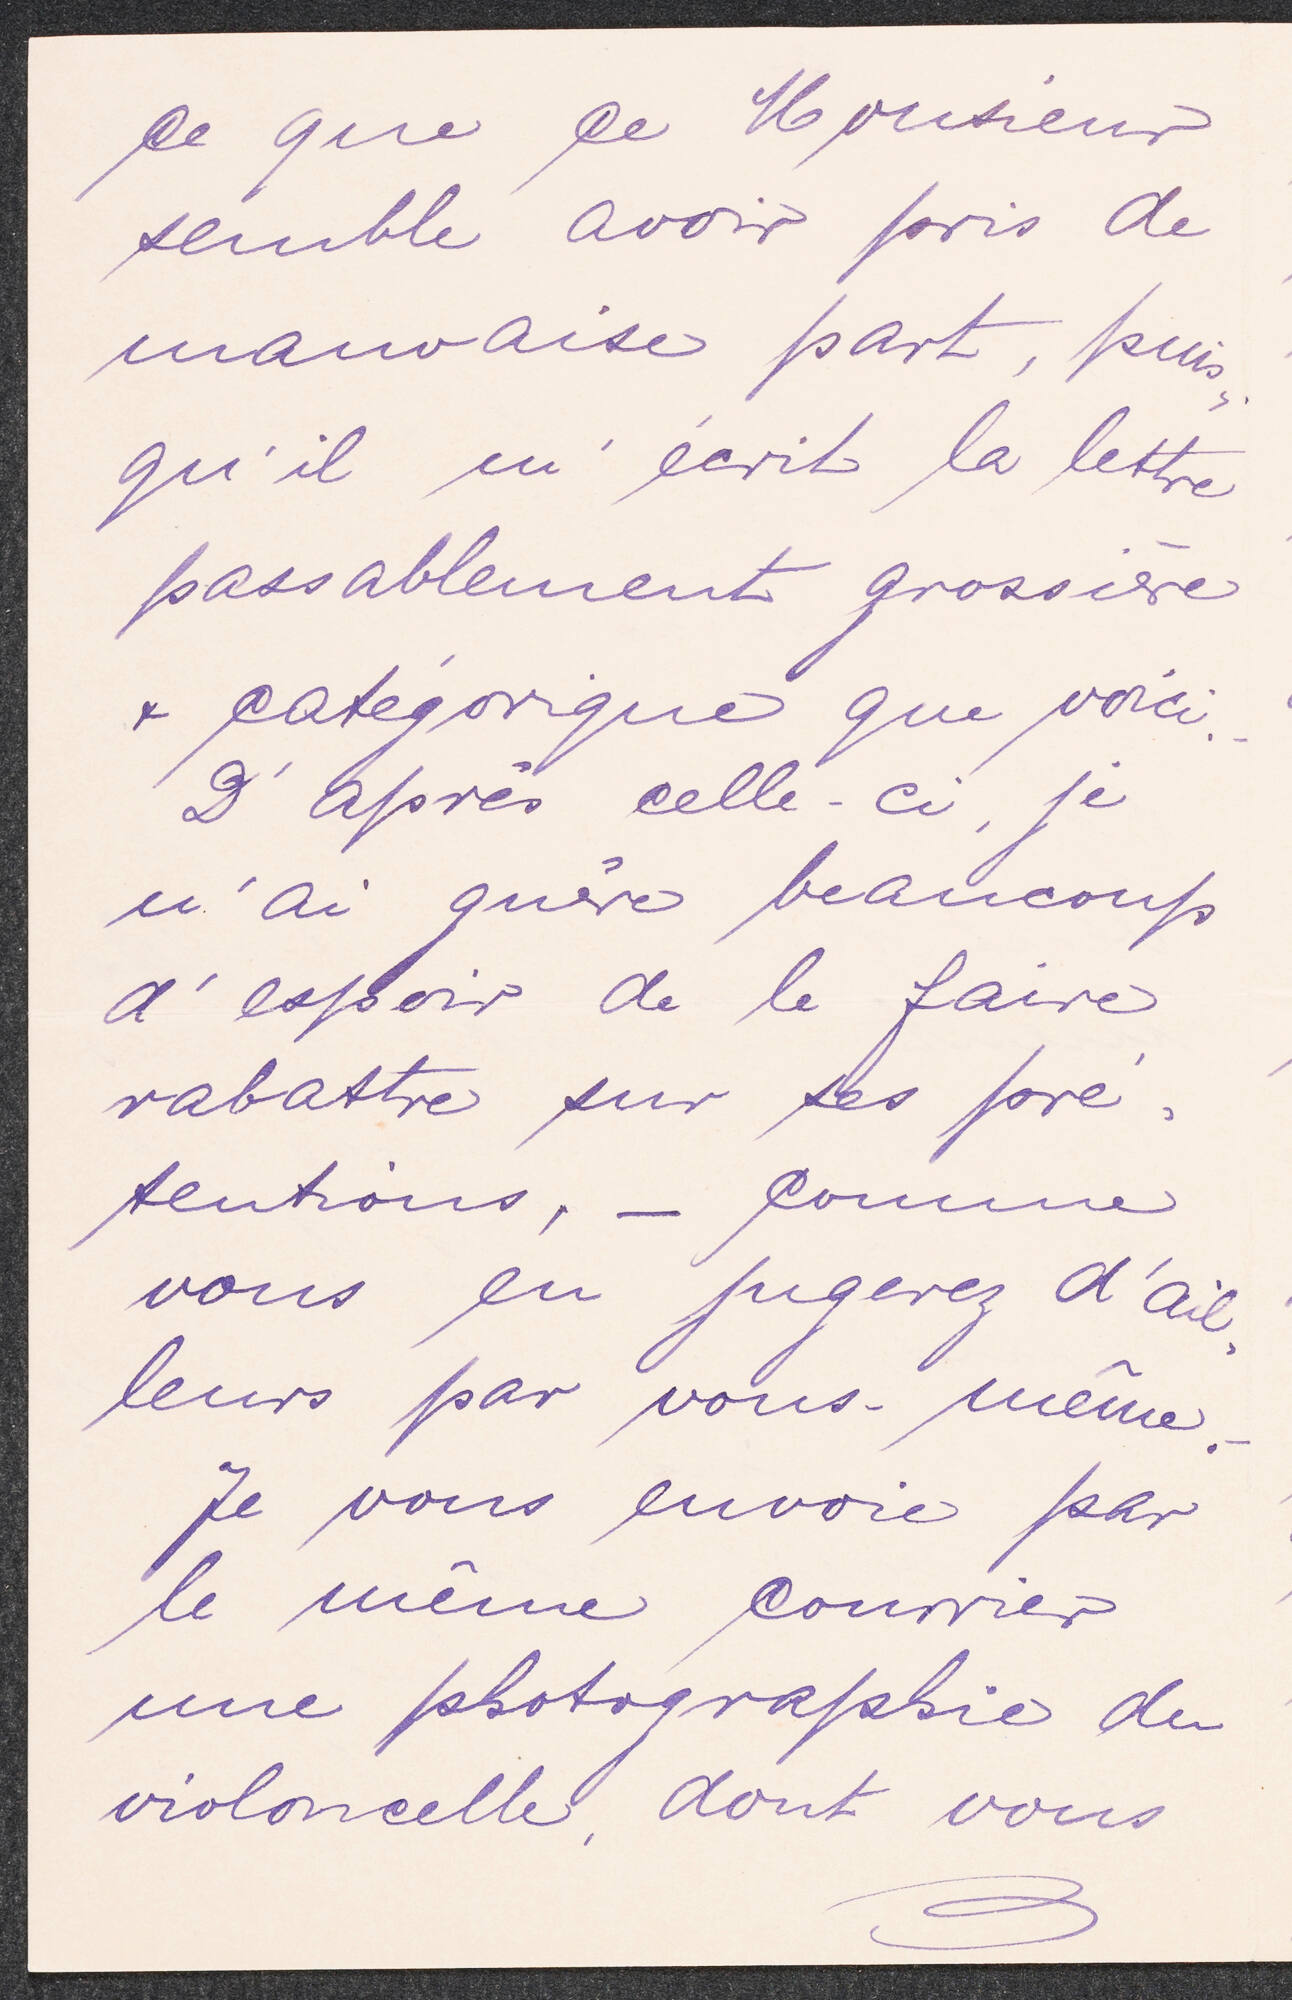 ce que ce Monsieur
semble avoir pris de
mauvaise part, puis„
qu'il m'écrit la lettre
passablement grossière
+ catégorique que voici.–
D'après celle-ci, je
n'ai guère beaucoup
d'espoir de le faire
rabattre sur ses pré„
tentions, – comme
vous en jugerez d'ail„
leurs par vous-même.–
Je vous envoie par
le même courrier
une photographie du
violoncelle, dont vous